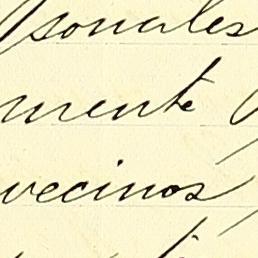 sonales
mente
vecinos